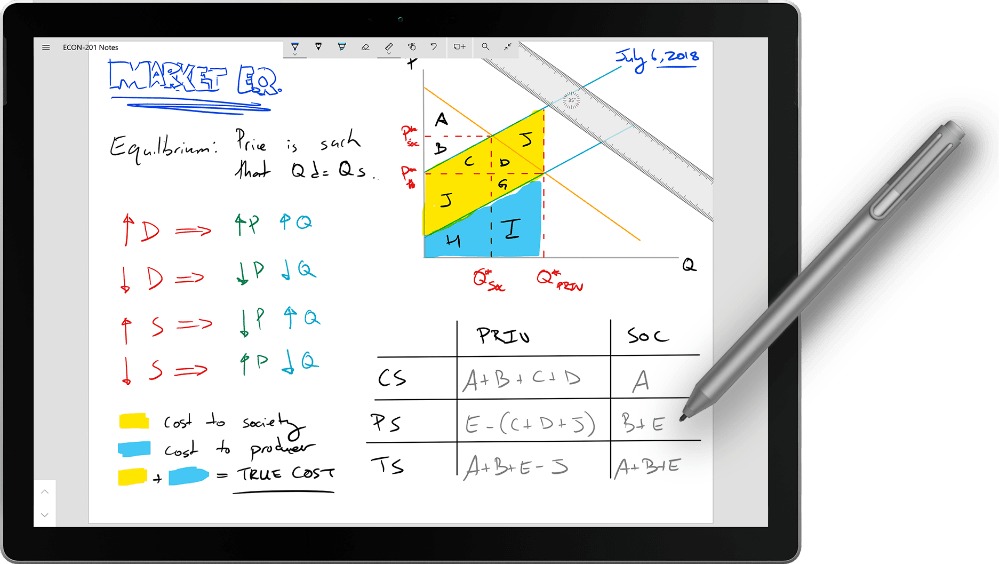 ECON-201 Notes
MARKET EQ.
July 6, 2018
Equilbrium: Price is such
that Qd = Qs.
↑ D ⇒ ↑P ↑Q
↓ D ⇒ ↓P ↓Q
↑ S ⇒ ↓P ↑Q
↓ S ⇒ ↑P ↓Q
cost to society
cost to producer
+ = TRUE COST
P
A
B
C
D
J
G
J
H
I
Q
Q* SOC
Q* PRIV
PRIV SOC
CS A+B+C+D A
PS E-(C+D+J) B+E
TS A+B+E-J A+B+E